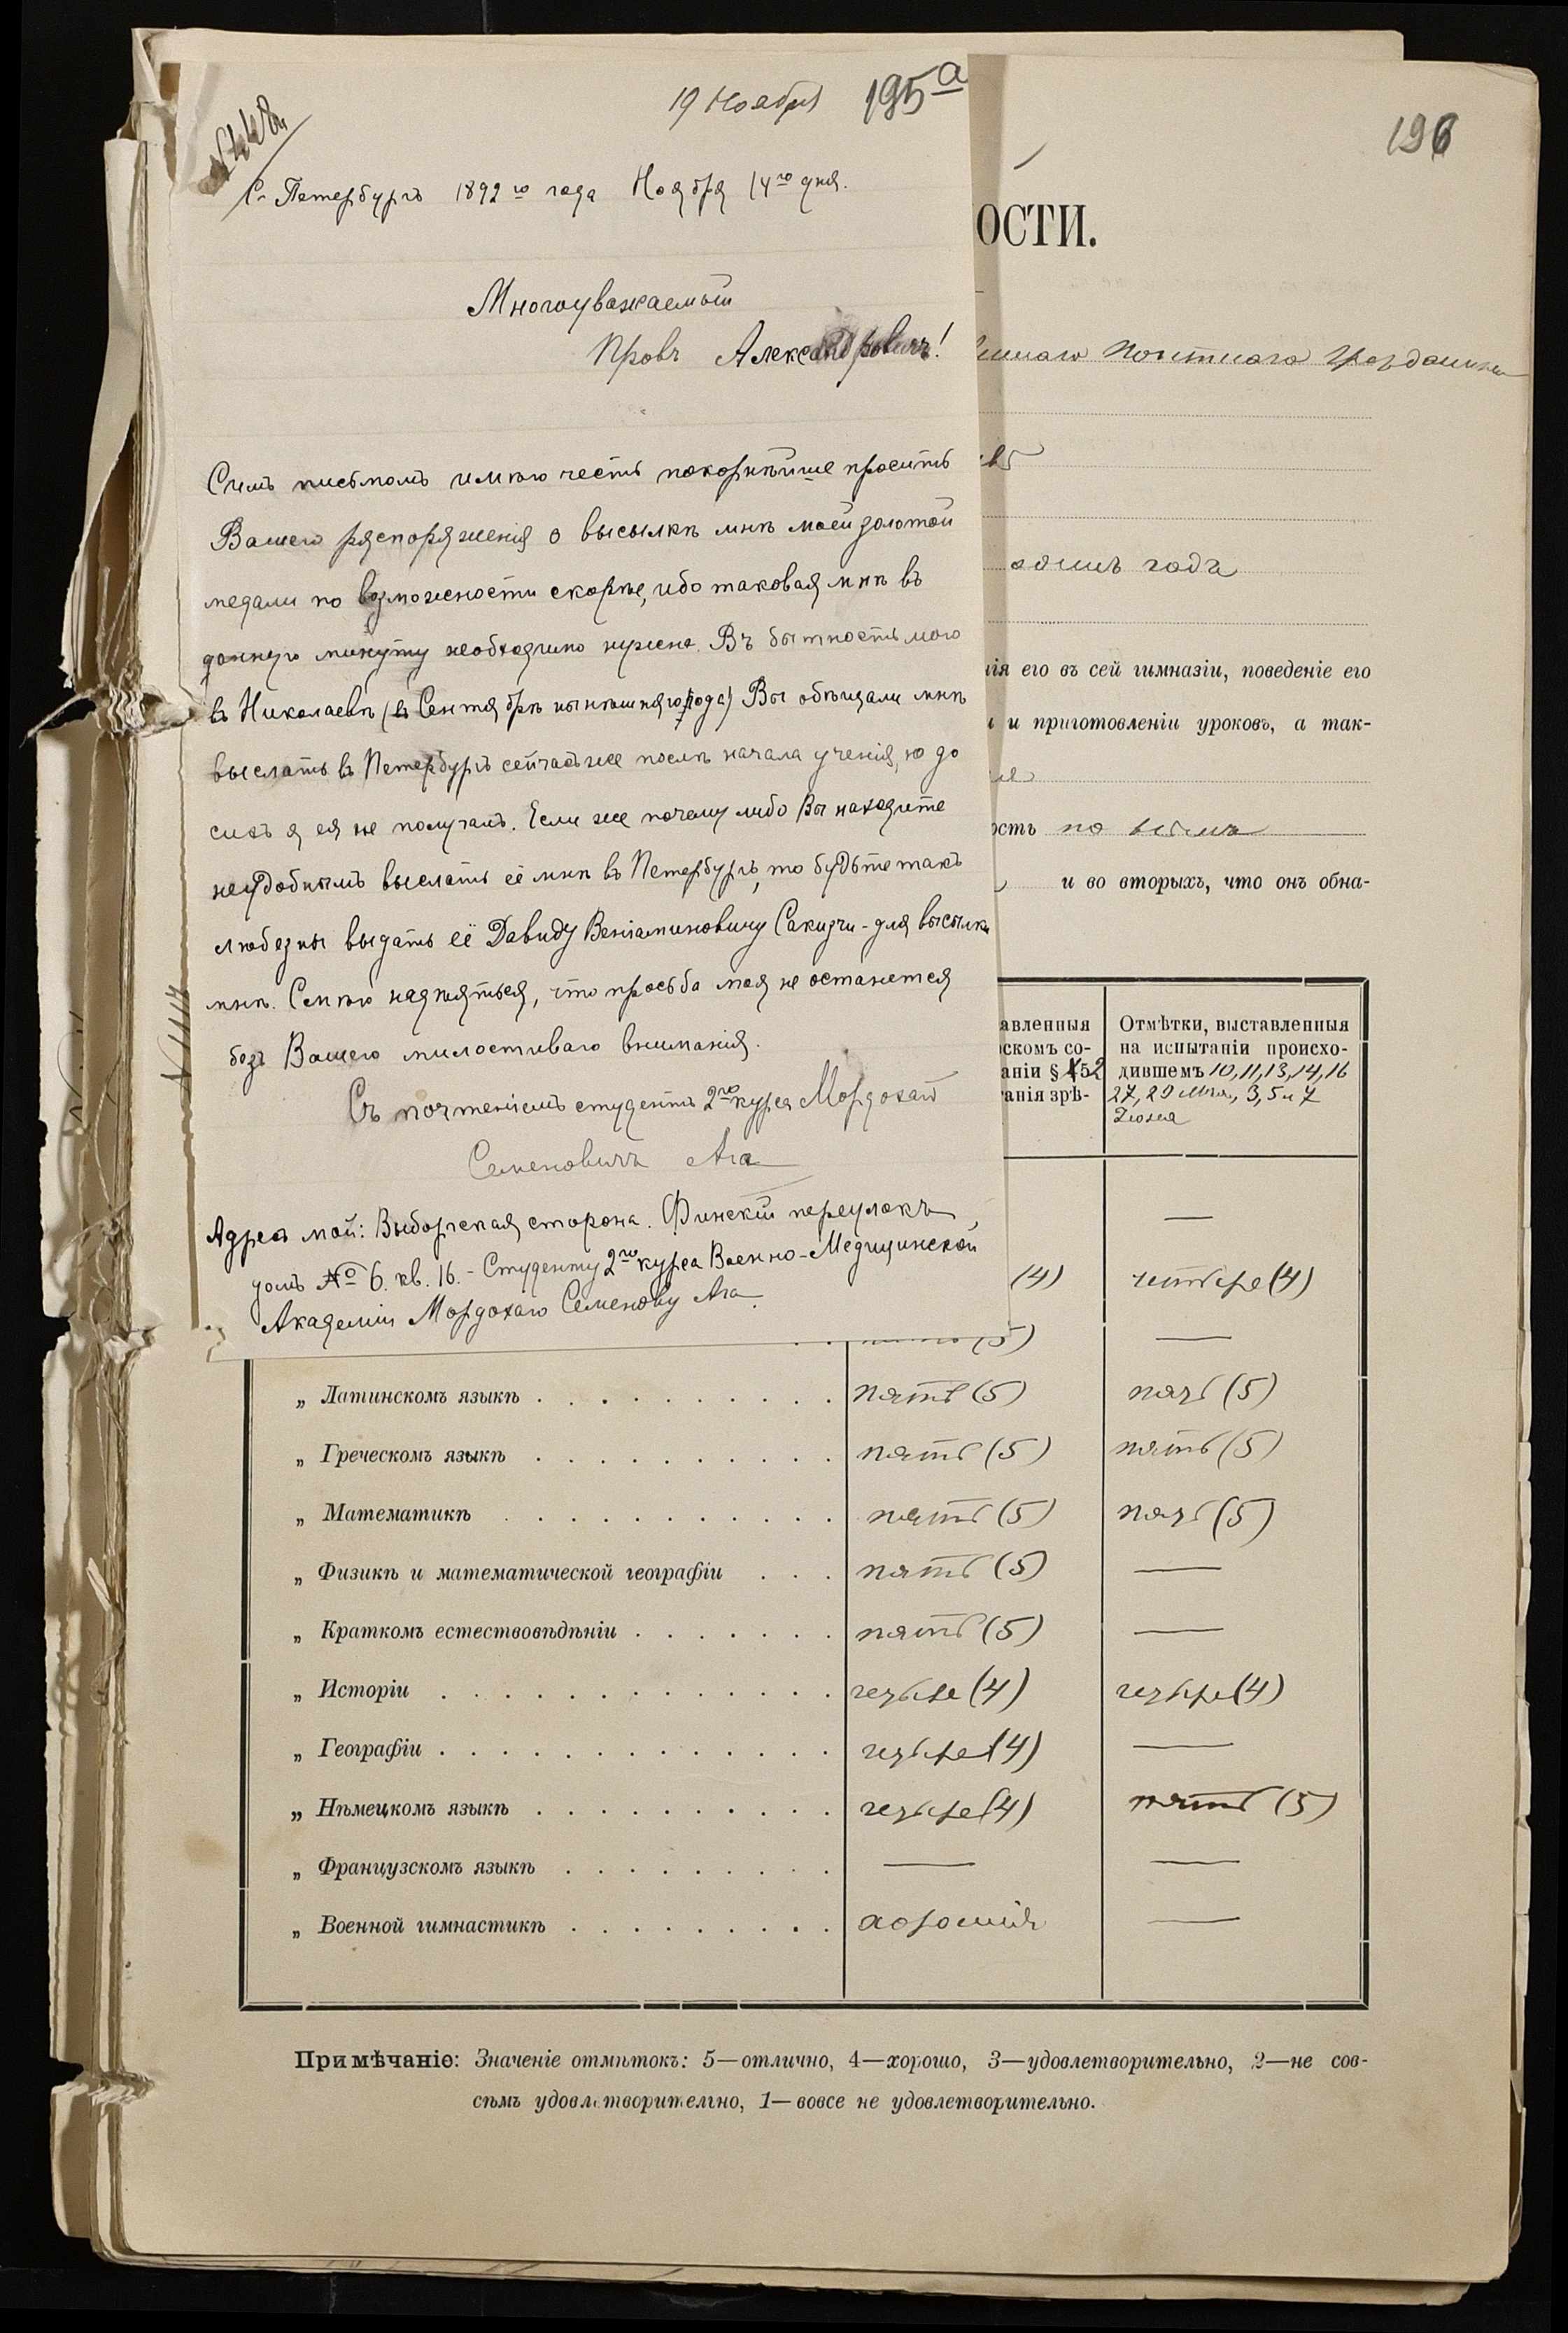 19 Ноября 195а
196
С. Петербургъ 1892го года Ноября 14го дня.
ОСТИ.
Многоуважаемый
Провъ Александровичъ!
Почтнаго Гражданина
Симъ письмомъ имѣю честь покорнѣйше просить
Вашего распоряженія о высылкѣ мнѣ моей золотой
медали по возможности скорѣе, ибо таковая мнѣ въ
данную минуту необходимо нужна. Въ бытность мою
въ Николаевѣ (въ Сентябрѣ нынѣшняго года) Вы обѣщали мнѣ
выслать въ Петербургъ сейчасъ же послѣ начала ученія, но до
сихъ я ея не получалъ. Если же почему либо Вы находите
неудобнымъ выслать её мнѣ въ Петербургъ, то будьте такъ
любезны выдать её Давиду Веніаминовичу Сакизчи - для высылки
мнѣ. Смѣю надѣяться, что просьба моя не останется
безъ Вашего милостиваго вниманія.
Съ почтеніемъ студентъ 2го курса Мордохай
Семеновичъ Ага
Адресъ мой: Выборгская сторона. Финскій переулокъ,
домъ № 6. кв. 16. - Студенту 2го курса Военно-Медицинской
Академіи Мордохаю Семенову Ага.
№ 1114
одинъ годъ
нія его въ сей гимназіи, поведеніе его
и и приготовленіи уроковъ, а так-
ость по всѣмъ
и во вторыхъ, что онъ обна-
авленныя
скомъ со-
аніи § 52
анія зрѣ-
Отмѣтки, выставленныя
на испытаніи происхо-
дившемъ 10, 11, 13, 14, 16
27, 29 Мая, 3, 5 и 7
Іюня
—
(4) четыре (4)
(5) —
„ Латинскомъ языкѣ . . . . . . . . . . пять (5) пять (5)
„ Греческомъ языкѣ . . . . . . . . . . пять (5) пять (5)
„ Математикѣ . . . . . . . . . . . пять (5) пять (5)
„ Физикѣ и математической географіи . . . пять (5) —
„ Краткомъ естествовѣдѣніи . . . . . . . пять (5) —
„ Исторіи . . . . . . . . . . . . . четыре (4) четыре (4)
„ Географіи . . . . . . . . . . . . . четыре (4) —
„ Нѣмецкомъ языкѣ . . . . . . . . . . четыре (4) пять (5)
„ Французскомъ языкѣ . . . . . . . . . — —
„ Военной гимнастикѣ . . . . . . . . . хорошія —
Примѣчаніе: Значеніе отмѣтокъ: 5—отлично, 4—хорошо, 3—удовлетворительно, 2—не сов-
сѣмъ удовлетворительно, 1—вовсе не удовлетворительно.